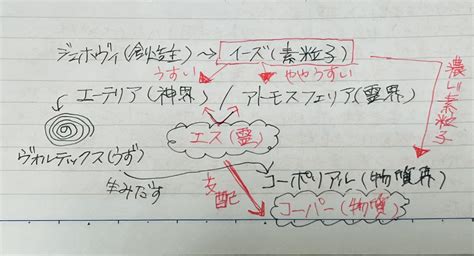 ジェホヴィ(創造主) → イーズ(素粒子)
うすい ややうすい
濃い素粒子
エーテリア(神界) / アトモスフェリア(霊界)
エス(霊)
ヴォルテックス(うず)
生みだす
支配
コーポリアル(物質界)
コーパー(物質)